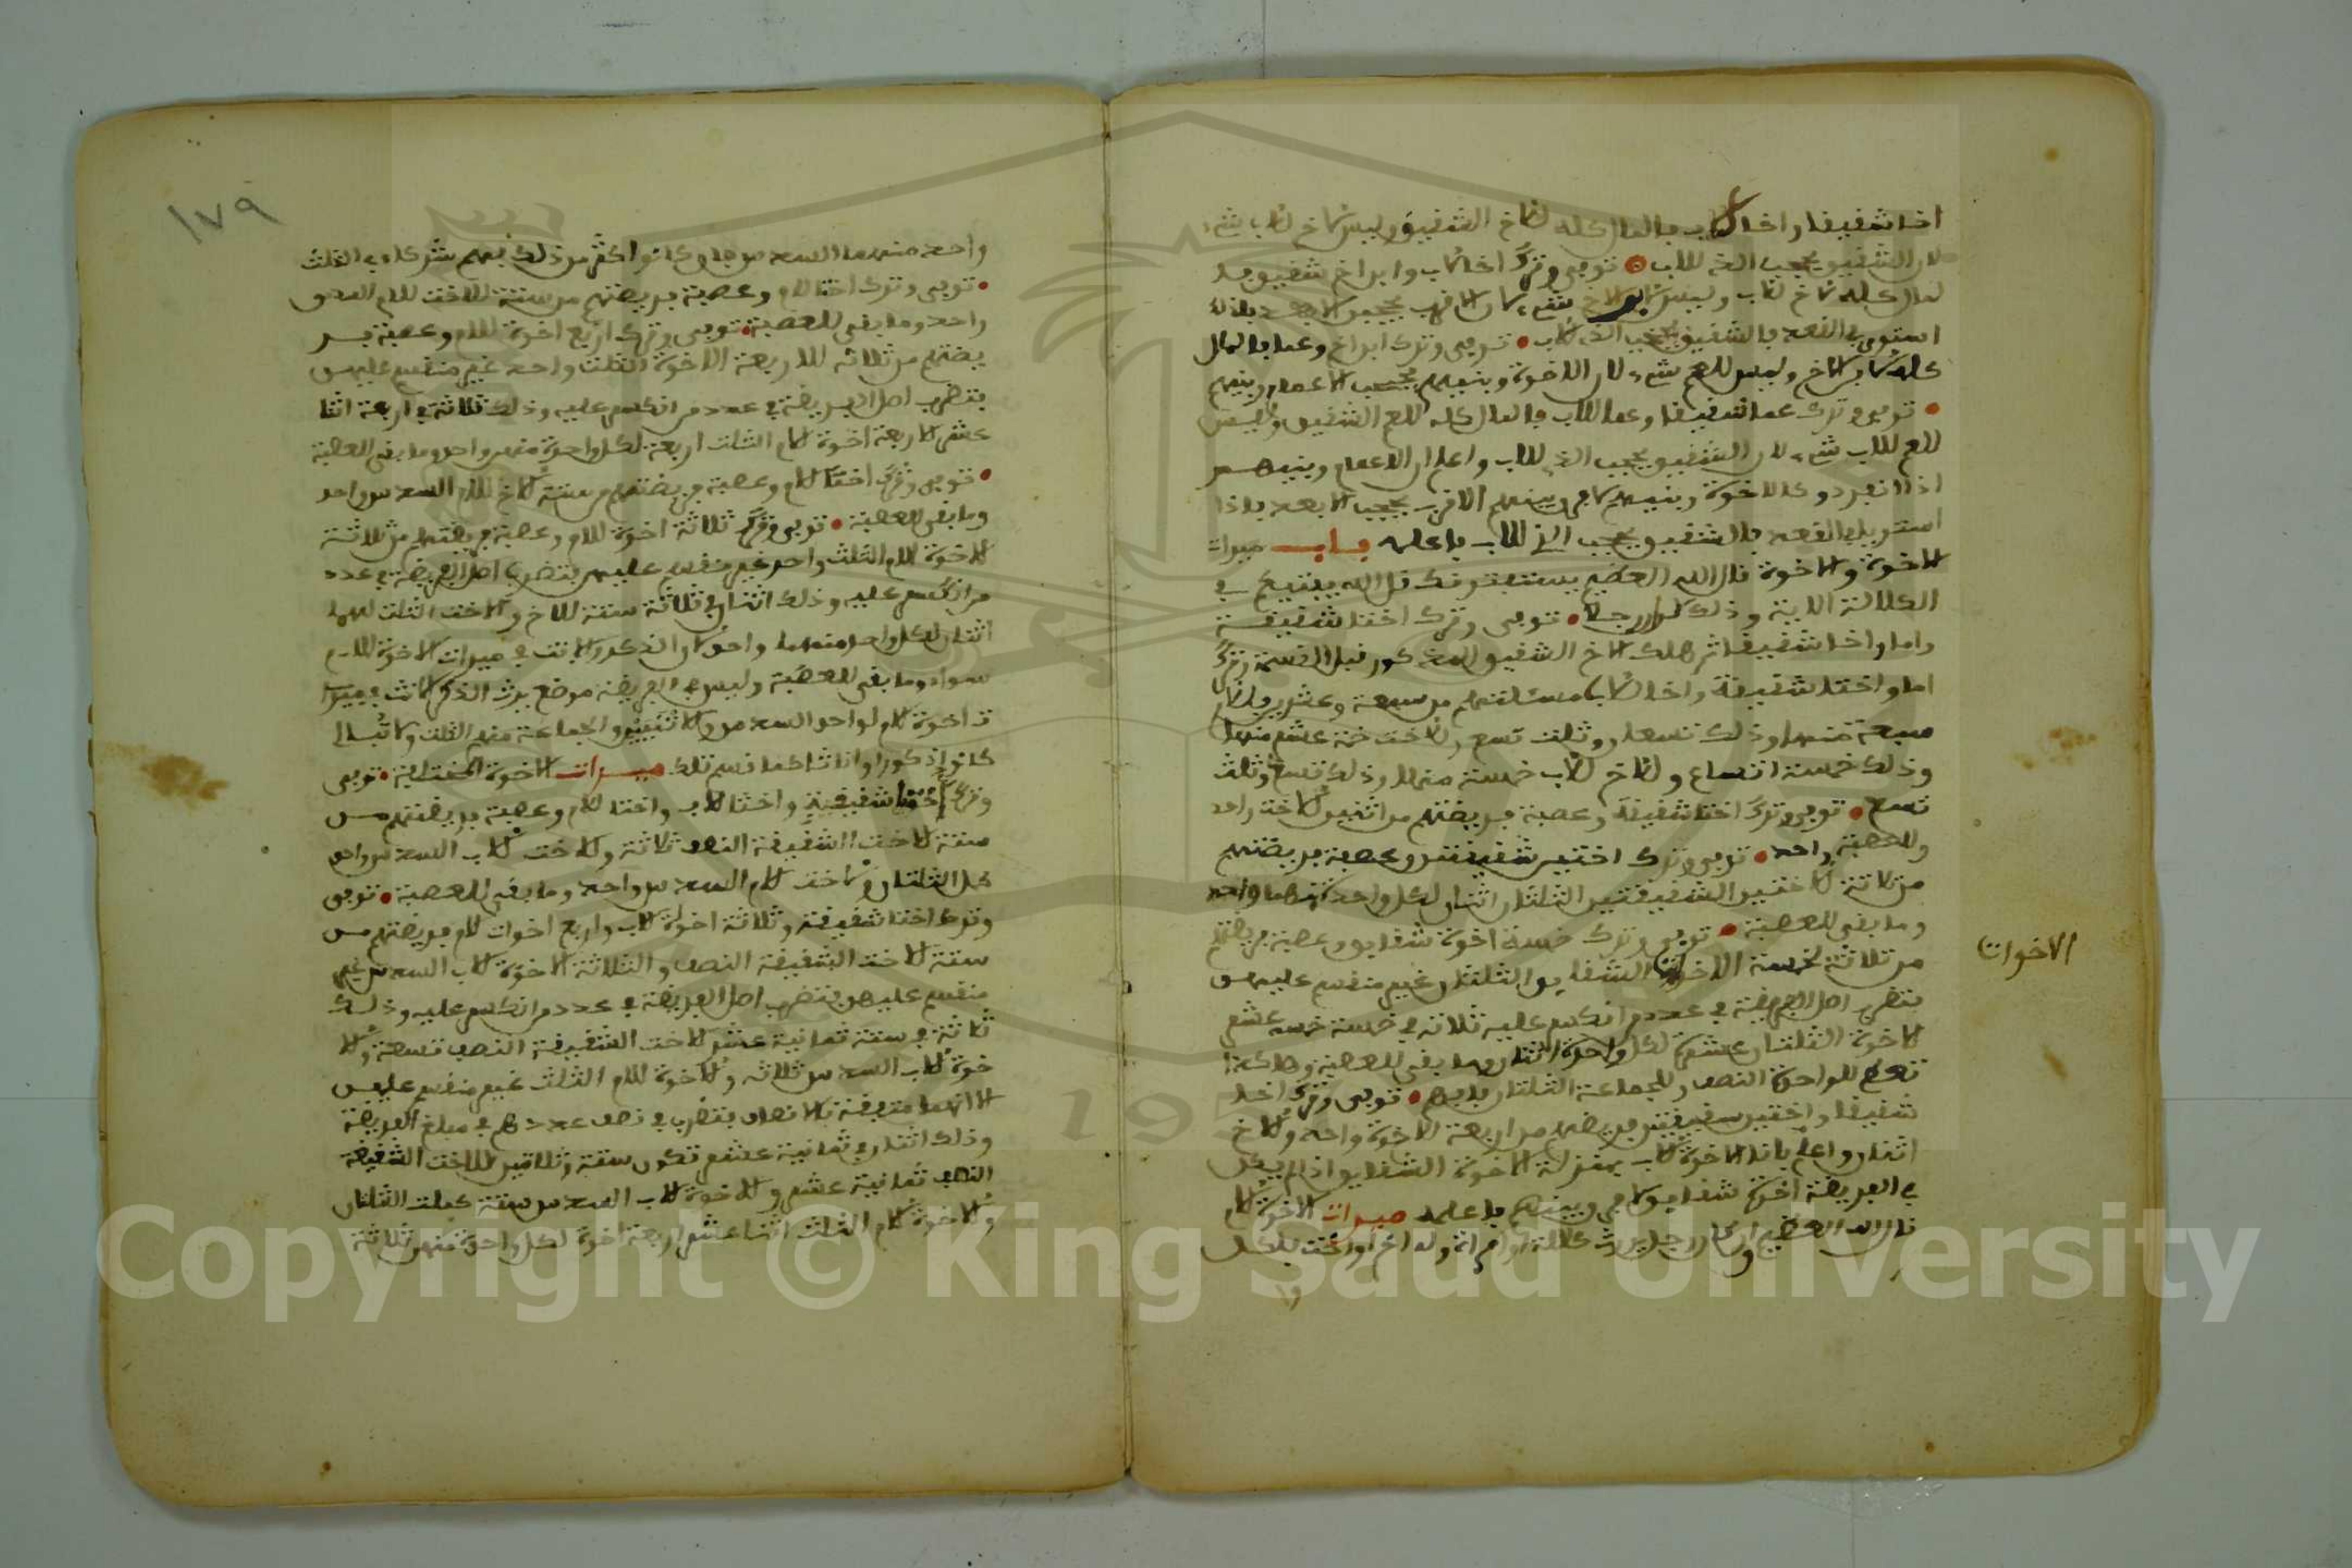 اخا شقيقا واخا للاب فالمال كله للاخ الشقيق وليس للاخ للاب شيء
لان الشقيق يحجب الذي للاب • توفي وترك اخا لاب وابن اخ شقيق فا
لمال كله للاخ للاب وليس لابن الاخ شيء لان الاقرب يحجب الابعد فاذا
استووا في القعدد فالشقيق يحجب الذي للاب • توفي وترك ابن اخ وعما فالمال
كله لابن الاخ وليس للعم شيء لان الاخوة وبنيهم يحجب الاعمام وبنيهم
• توفي وترك عما شقيقا وعما للاب فالمال كله للعم الشقيق وليس
للعم للاب شيء لان الشقيق يحجب الذي للاب واعلم ان الاعمام وبنيهم
اذا انفردوا كالاخوة وبنيهم لا فرق بينهم الاقرب يحجب الابعد فاذا
استووا في القعدد فالشقيق يحجب الذي للاب فاعلمه باب ميراث
الاخوة والاخوة قال الله العظيم يستفتونك قل الله يفتيكم في
الكلالة الاية وذلك • توفي وترك اختا شقيقة
واما واخا شقيقا ثم هلك الاخ الشقيق المذكور قبل القسمة وترك
اما واختا شقيقة واخا لاب مسئلتهم من سبعة وعشرين فللام
سبعة منها وذلك تسعان وثلث تسع وللاخت خمسة عشر منها
وذلك خمسة اتساع وللاخ للاب خمسة منها وذلك تسع وثلث
تسع • توفي وترك اختا شقيقة وعصبة فريضتهم من اثنين للاخت واحد
وللعصبة واحد • توفي وترك اختين شقيقتين وعصبة فريضتهم
من ثلاثة للاختين الشقيقتين الثلثان اثنان لكل واحدة منهما واحد
وما بقي للعصبة • توفي وترك خمسة اخوة شقايق وعصبة فريضتهم
من ثلاثة لخمسة الاخوة الشقايق الثلثان غير منقسم عليهن
فتضرب اصل الفريضة في عدد من انكسر عليه ثلاثة في خمسة خمسة عشر
للاخوة الثلثان عشرة لكل واحدة اثنان وما بقي للعصبة وهكذا
تصنع للواحدة النصف وللجماعة الثلثان فافهم • توفي وترك اخا
شقيقا واختين شقيقتين فريضتهم من اربعة للاخوة واحد وللاخ
اثنان واعلم بان الاخوة للاب بمنزلة الاخوة الشقايق اذا لم يكن
في الفريضة اخوة شقايق لا فرق بينهم فاعلمه ميراث الاخوة للام
قال الله العظيم وان كان رجل يورث كلالة او امراة وله اخ او اخت فلكل
وا
الاخوات
١٧٩
واحد منهما السدس فان كانوا اكثر من ذلك فهم شركاء في الثلث
• توفي وترك اختا للام وعصبة فريضتهم من ستة للاخت للام السدس
واحد وما بقي للعصبة • توفي وترك اربع اخوة للام وعصبة فر
يضتهم من ثلاثة للاربعة الاخوة الثلث واحد غير منقسم عليهن
فتضرب اصل الفريضة في عدد من انكسر عليه وذلك ثلاثة في اربعة اثنا
عشر للاربعة اخوة للام الثلث اربعة لكل واحدة منهن واحد وما بقي للعصبة
• توفي وترك اخا للام وعصبة فريضتهم من ستة للاخ للام السدس واحد
وما بقي للعصبة • توفي وترك ثلاثة اخوة للام وعصبة فريضتهم من ثلاثة
للاخوة للام الثلث واحد غير منقسم عليهم فتضرب اصل الفريضة في عدد
من انكسر عليه وذلك اثنان في ثلاثة ستة للاخ وللاخت الثلث لهما
اثنان لكل واحد منهما واحد لان الذكور والانثى في ميراث الاخوة للام
سواء وما بقي للعصبة وليس في الفريضة موضع يرث الذكر كالانثى في ميرا
ث اخوة للام لواحد السدس وللاثنين والجماعة منهم الثلث ولا تبالي
كانوا ذكورا او اناثا كما قسم تلك ميراث الاخوة المختلفة • توفي
وترك اختا شقيقة واختا للاب واختا للام وعصبة فريضتهم من
ستة للاخت الشقيقة النصف ثلاثة وللاخت للاب السدس واحد
كمل الثلثان وللاخت للام السدس واحد وما بقي للعصبة • توفي
وترك اختا شقيقة وثلاثة اخوة للاب واربع اخوات للام فريضتهم من
ستة للاخت الشقيقة النصف والثلاثة الاخوة للاب السدس غير
منقسم عليهن فتضرب اصل الفريضة في عدد من انكسر عليه وذلك
ثلاثة في ستة ثمانية عشر للاخت الشقيقة النصف تسعة وللا
خوة للاب السدس ثلاثة وللاخوة للام الثلث غير منقسم عليهن
الا انهما متفقة بالانصاف فتضرب في نصف عددهم في مبلغ الفريضة
وذلك اثنان في ثمانية عشر تكون ستة وثلاثين للاخت الشقيقة
النصف ثمانية عشر وللاخوة للاب السدس ستة كملت الثلثان
وللاخوة للام الثلث اثنا عشر اربعة اخوة لكل واحدة منهن ثلاثة
Copyright © King Saud University
195